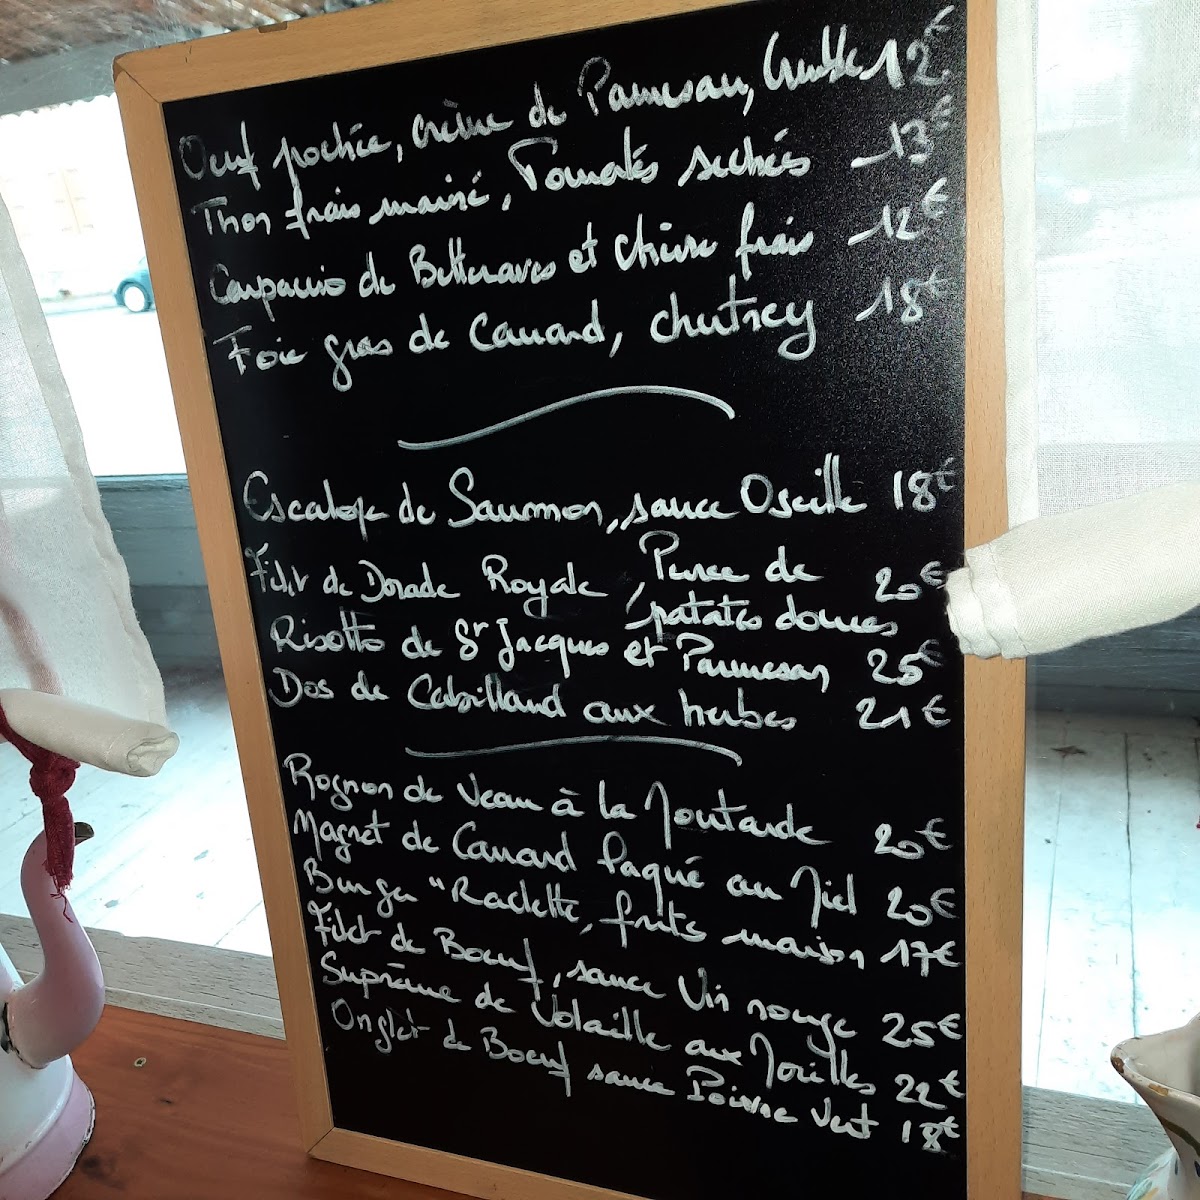 Oeuf pochée, crème de Parmesan, 12€
Thon frais mariné, Tomates séchés 13€
Carpaccio de Betteraves et chèvre frais 12€
Foie gras de Canard, chutney 18€
Escalope de Saumon, sauce Oseille 18€
Filet de Dorade Royale, Purée de 20€
patates douces
Risotto de St Jacques et Parmesan 25€
Dos de Cabillaud aux herbes 21€
Rognon de Veau à la Moutarde 20€
Magret de Canard laqué au Miel 20€
Burger "Raclette, frites maison 17€
Filet de Boeuf, sauce Vin rouge 25€
Suprême de Volaille aux Morilles 22€
Onglet de Boeuf sauce Poivre Vert 18€